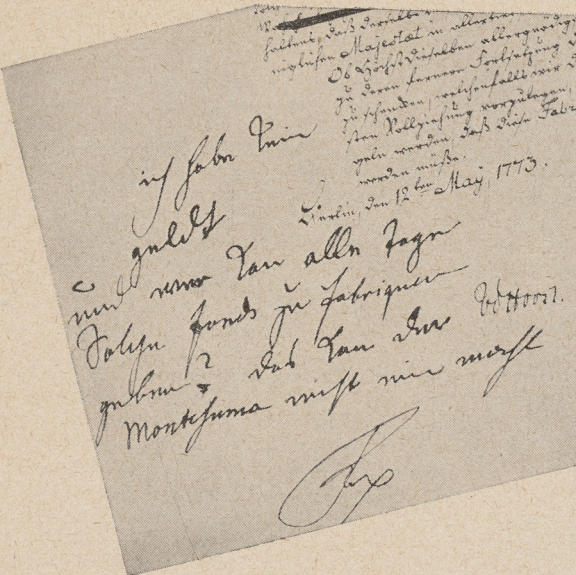 haltens, daß derselbe
niglichen Majestæt in allertief
Ob Höchstdieselben allergnädigst
zu deren fernern Fortsetzung
zu schencken, welchenfalls wir
sten Vollziehung vorzulegen,
geln werden, daß diese Fabri
werden müße.
Berlin, den 12ten May, 1773.
ich habe Kein
geldt
und wer Kan alle Tage
Solche fonds zu fabriquen
geben? das Kan der
Montesuma nicht ein mahl
vdHorst.